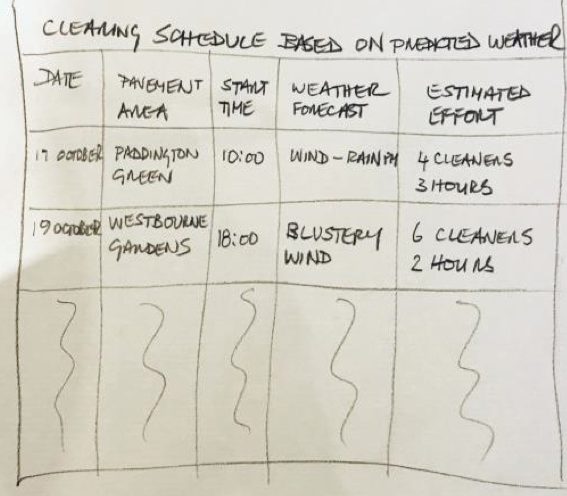 CLEARING SCHEDULE BASED ON PREDICTED WEATHER
DATE
PAVEMENT
AREA
START
TIME
WEATHER
FORECAST
ESTIMATED
EFFORT
17 OCTOBER
PADDINGTON
GREEN
10:00
WIND - RAIN PM
4 CLEANERS
3 HOURS
19 OCTOBER
WESTBOURNE
GARDENS
18:00
BLUSTERY
WIND
6 CLEANERS
2 HOURS